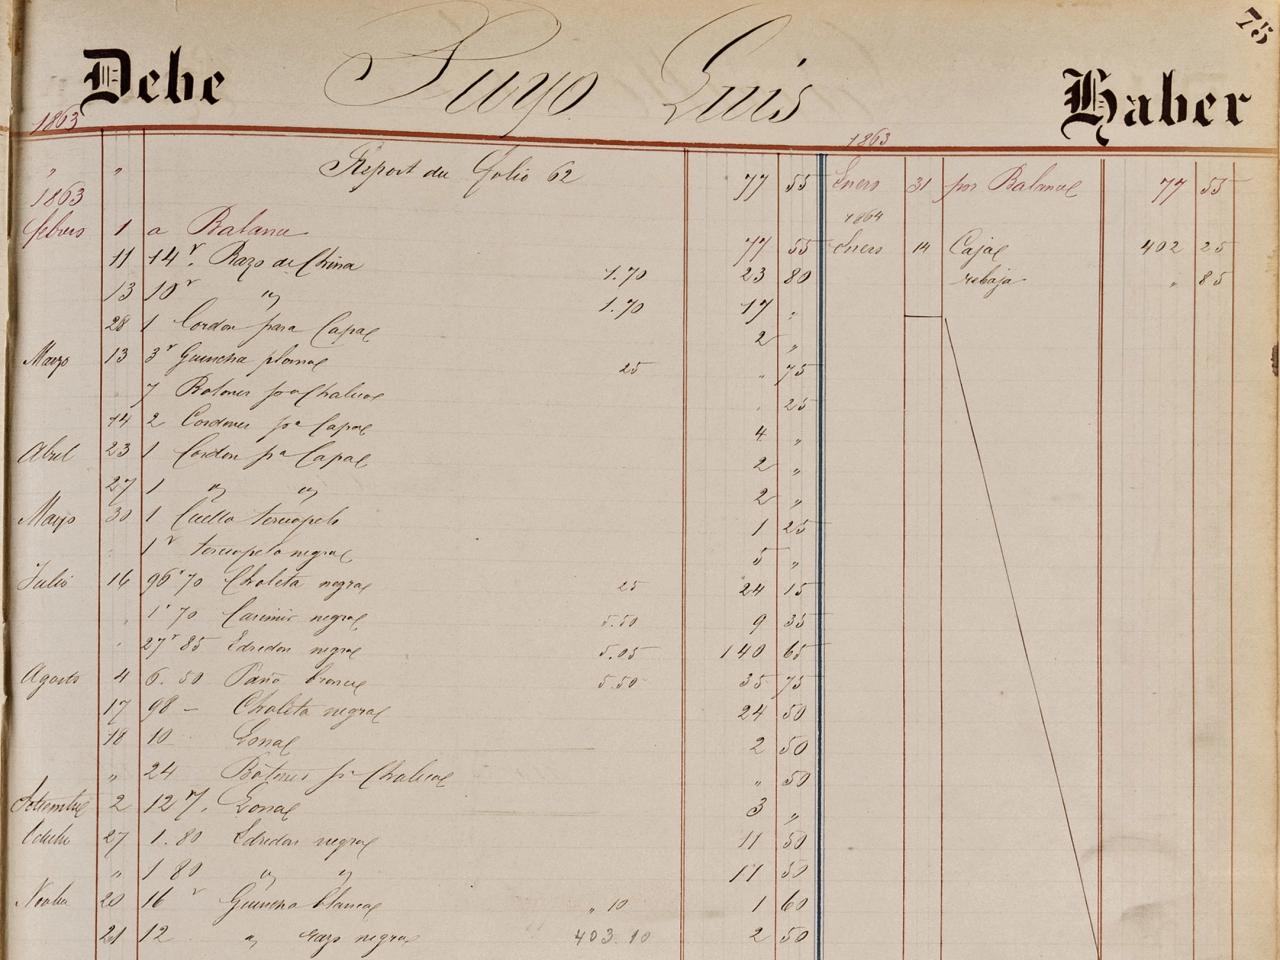 75
Debe Puyo Luis Haber
1863 1863
" " Report du folio 62 77 55 Enero 31 por Balance 77 55
1863 1864
febrero 1 a Balance 77 55 Enero 14 Caja 402 25
11 14 v. Razo de China 1.70 23 80 rebaja " 85
13 10 v " 1.70 17 "
28 1 Cordon para Capa 2 "
Marzo 13 3 v Guincha 25 " 75
7 Botones pa Chaleco " 25
14 2 Cordones pa Capa 4 "
Abril 23 1 Cordon pa Capa 2 "
27 1 " " 2 "
Mayo 30 1 Cuello terciopelo 1 25
1 v terciopelo negro 5 "
Julio 16 96 v 70 Choleta negra 25 24 15
" 1 v 70 Casimir negro 5.50 9 35
" 27 v 85 Edredon negro 5.05 140 65
Agosto 4 6.50 Paño bronce 5.50 35 75
17 98 – Choleta negra 24 50
18 10 Lona 2 50
" 24 Botones pa Chaleco " 50
Setiembre 2 12 v. Lona 3 "
Octubre 27 1.80 Edredon negro 11 50
" 1 80 " " 11 50
20 16 v Guincha blanca " 10 1 60
21 12 " razo negro 403.10 2 50